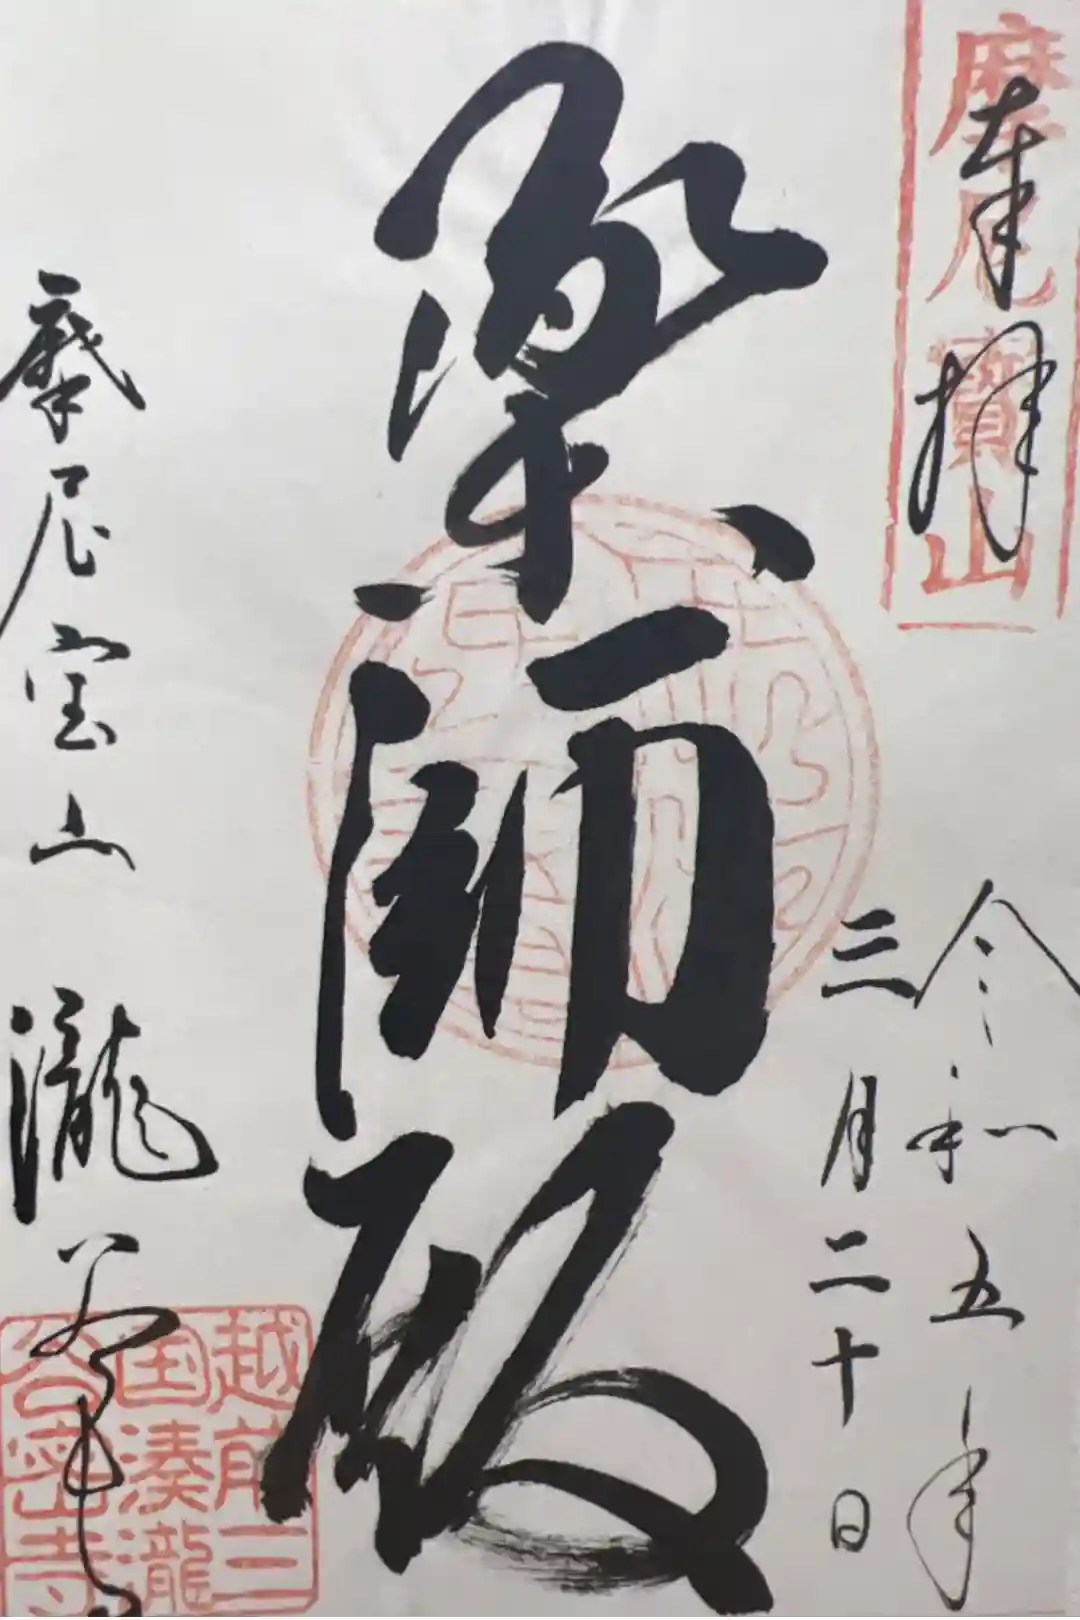 摩尼寶山
奉拝
令和五年
三月二十日
薬師殿
摩尼宝山
瀧谷寺
越前三
国湊瀧
谷密寺